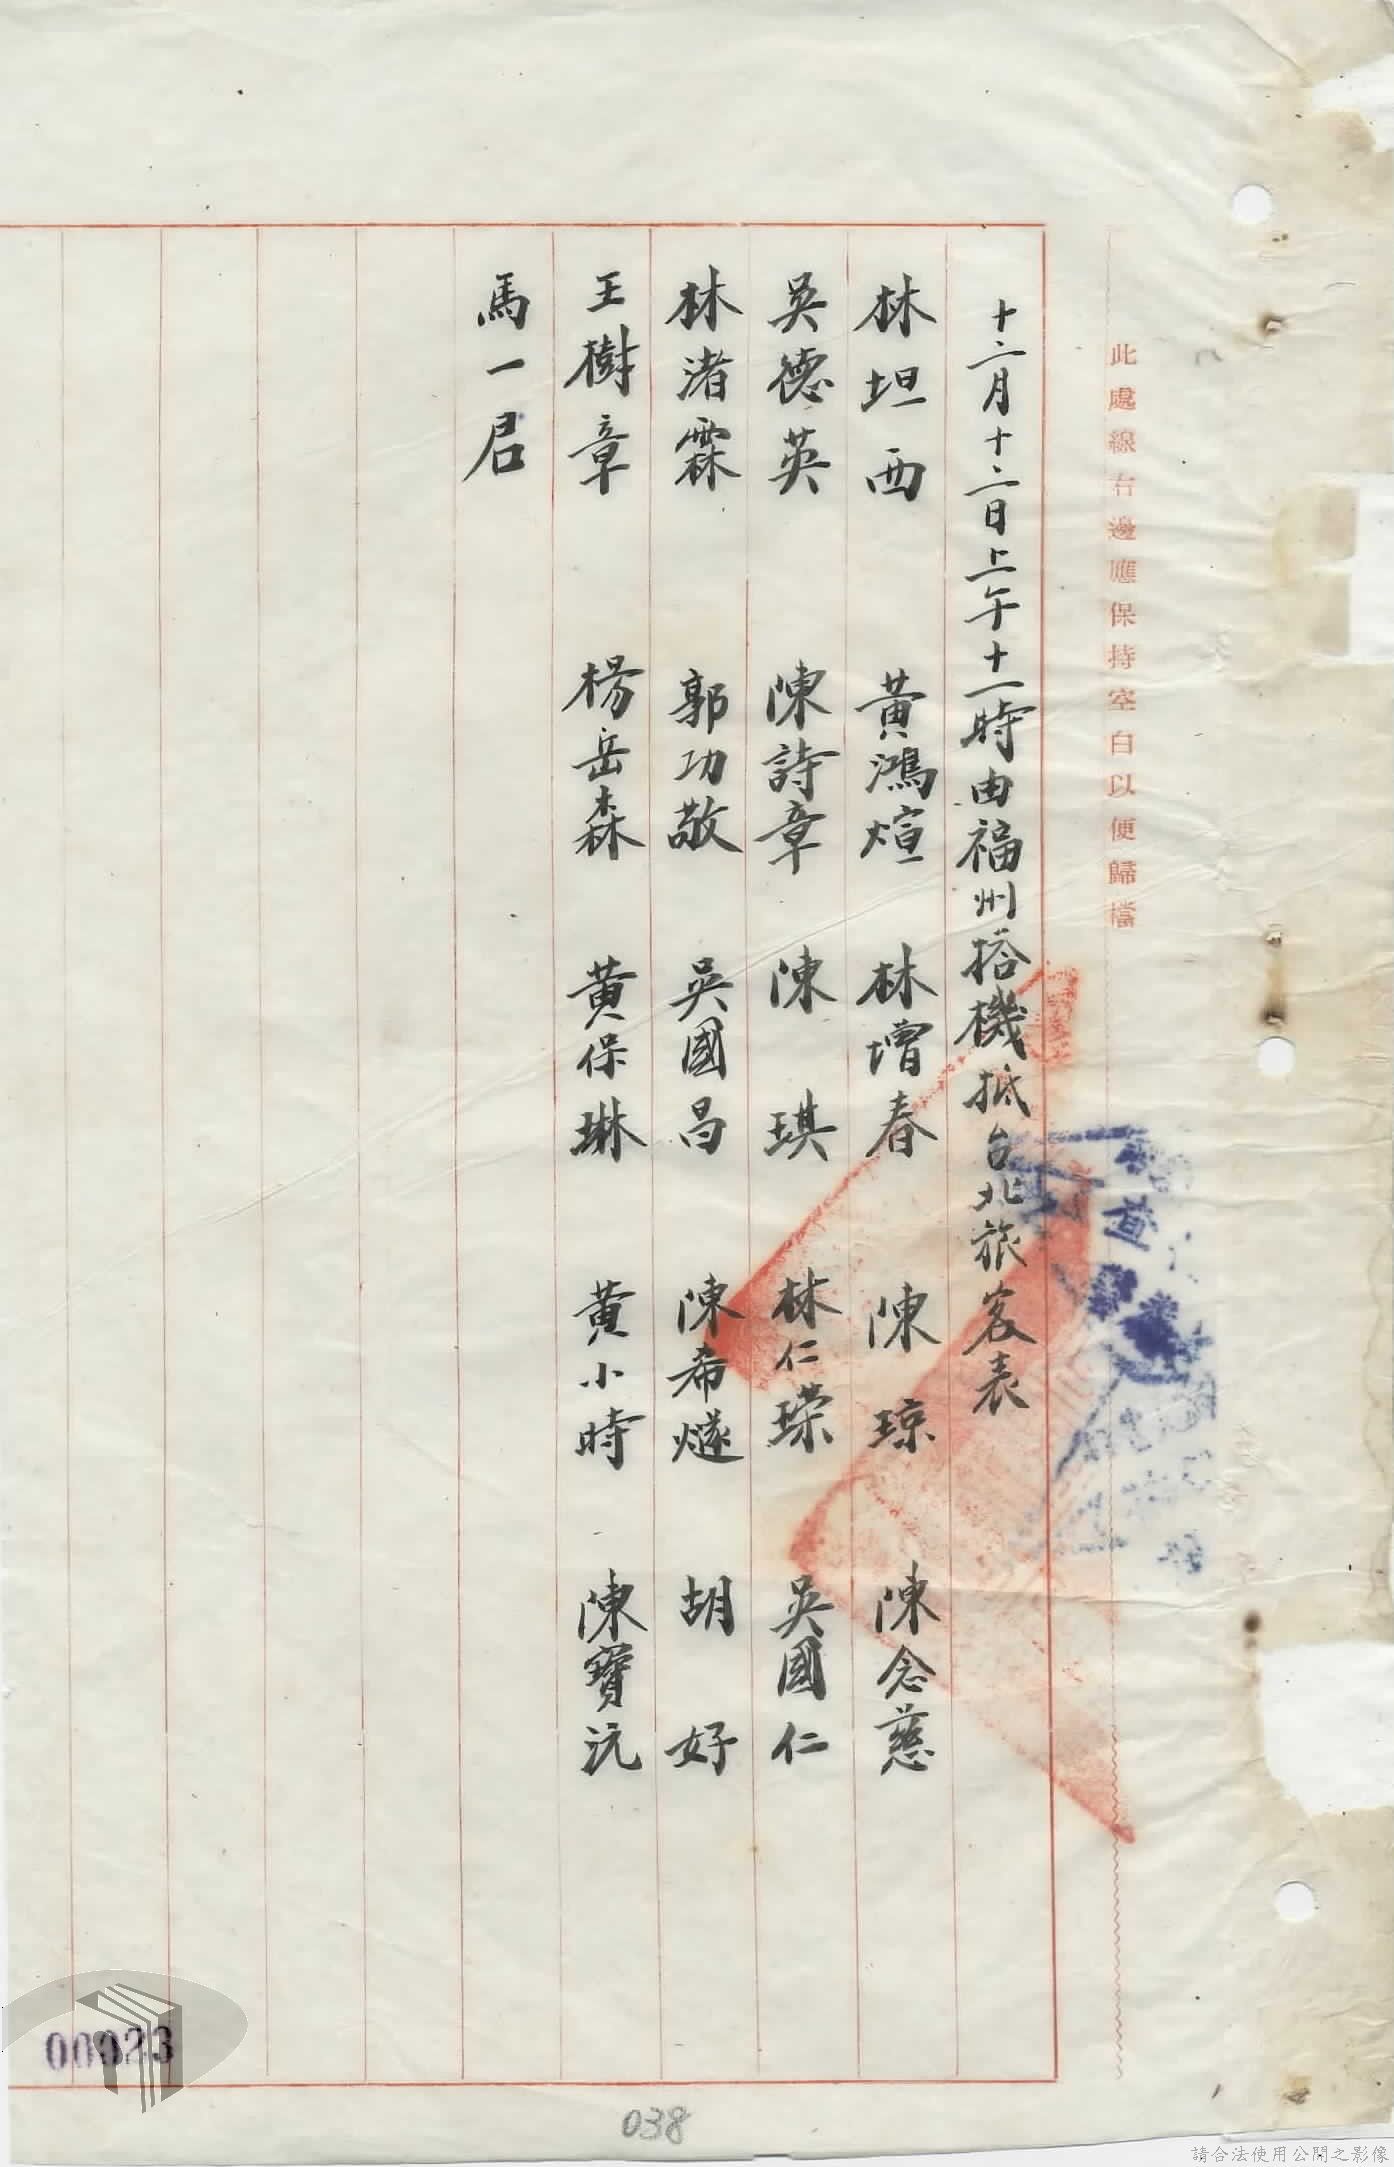 此處線右邊應保持空白以便歸檔
十二月十二日上午十一時由福州搭機抵台北旅客表
林坦西 黃鴻煊 林增春 陳琼 陳念慈
吳德英 陳詩章 陳琪 林仁璨 吳國仁
林渚霖 郭功敬 吳國昌 陳希燧 胡好
王樹章 楊岳森 黃保琳 黃小時 陳寶沅
馬一君
00023
038
請合法使用公開之影像